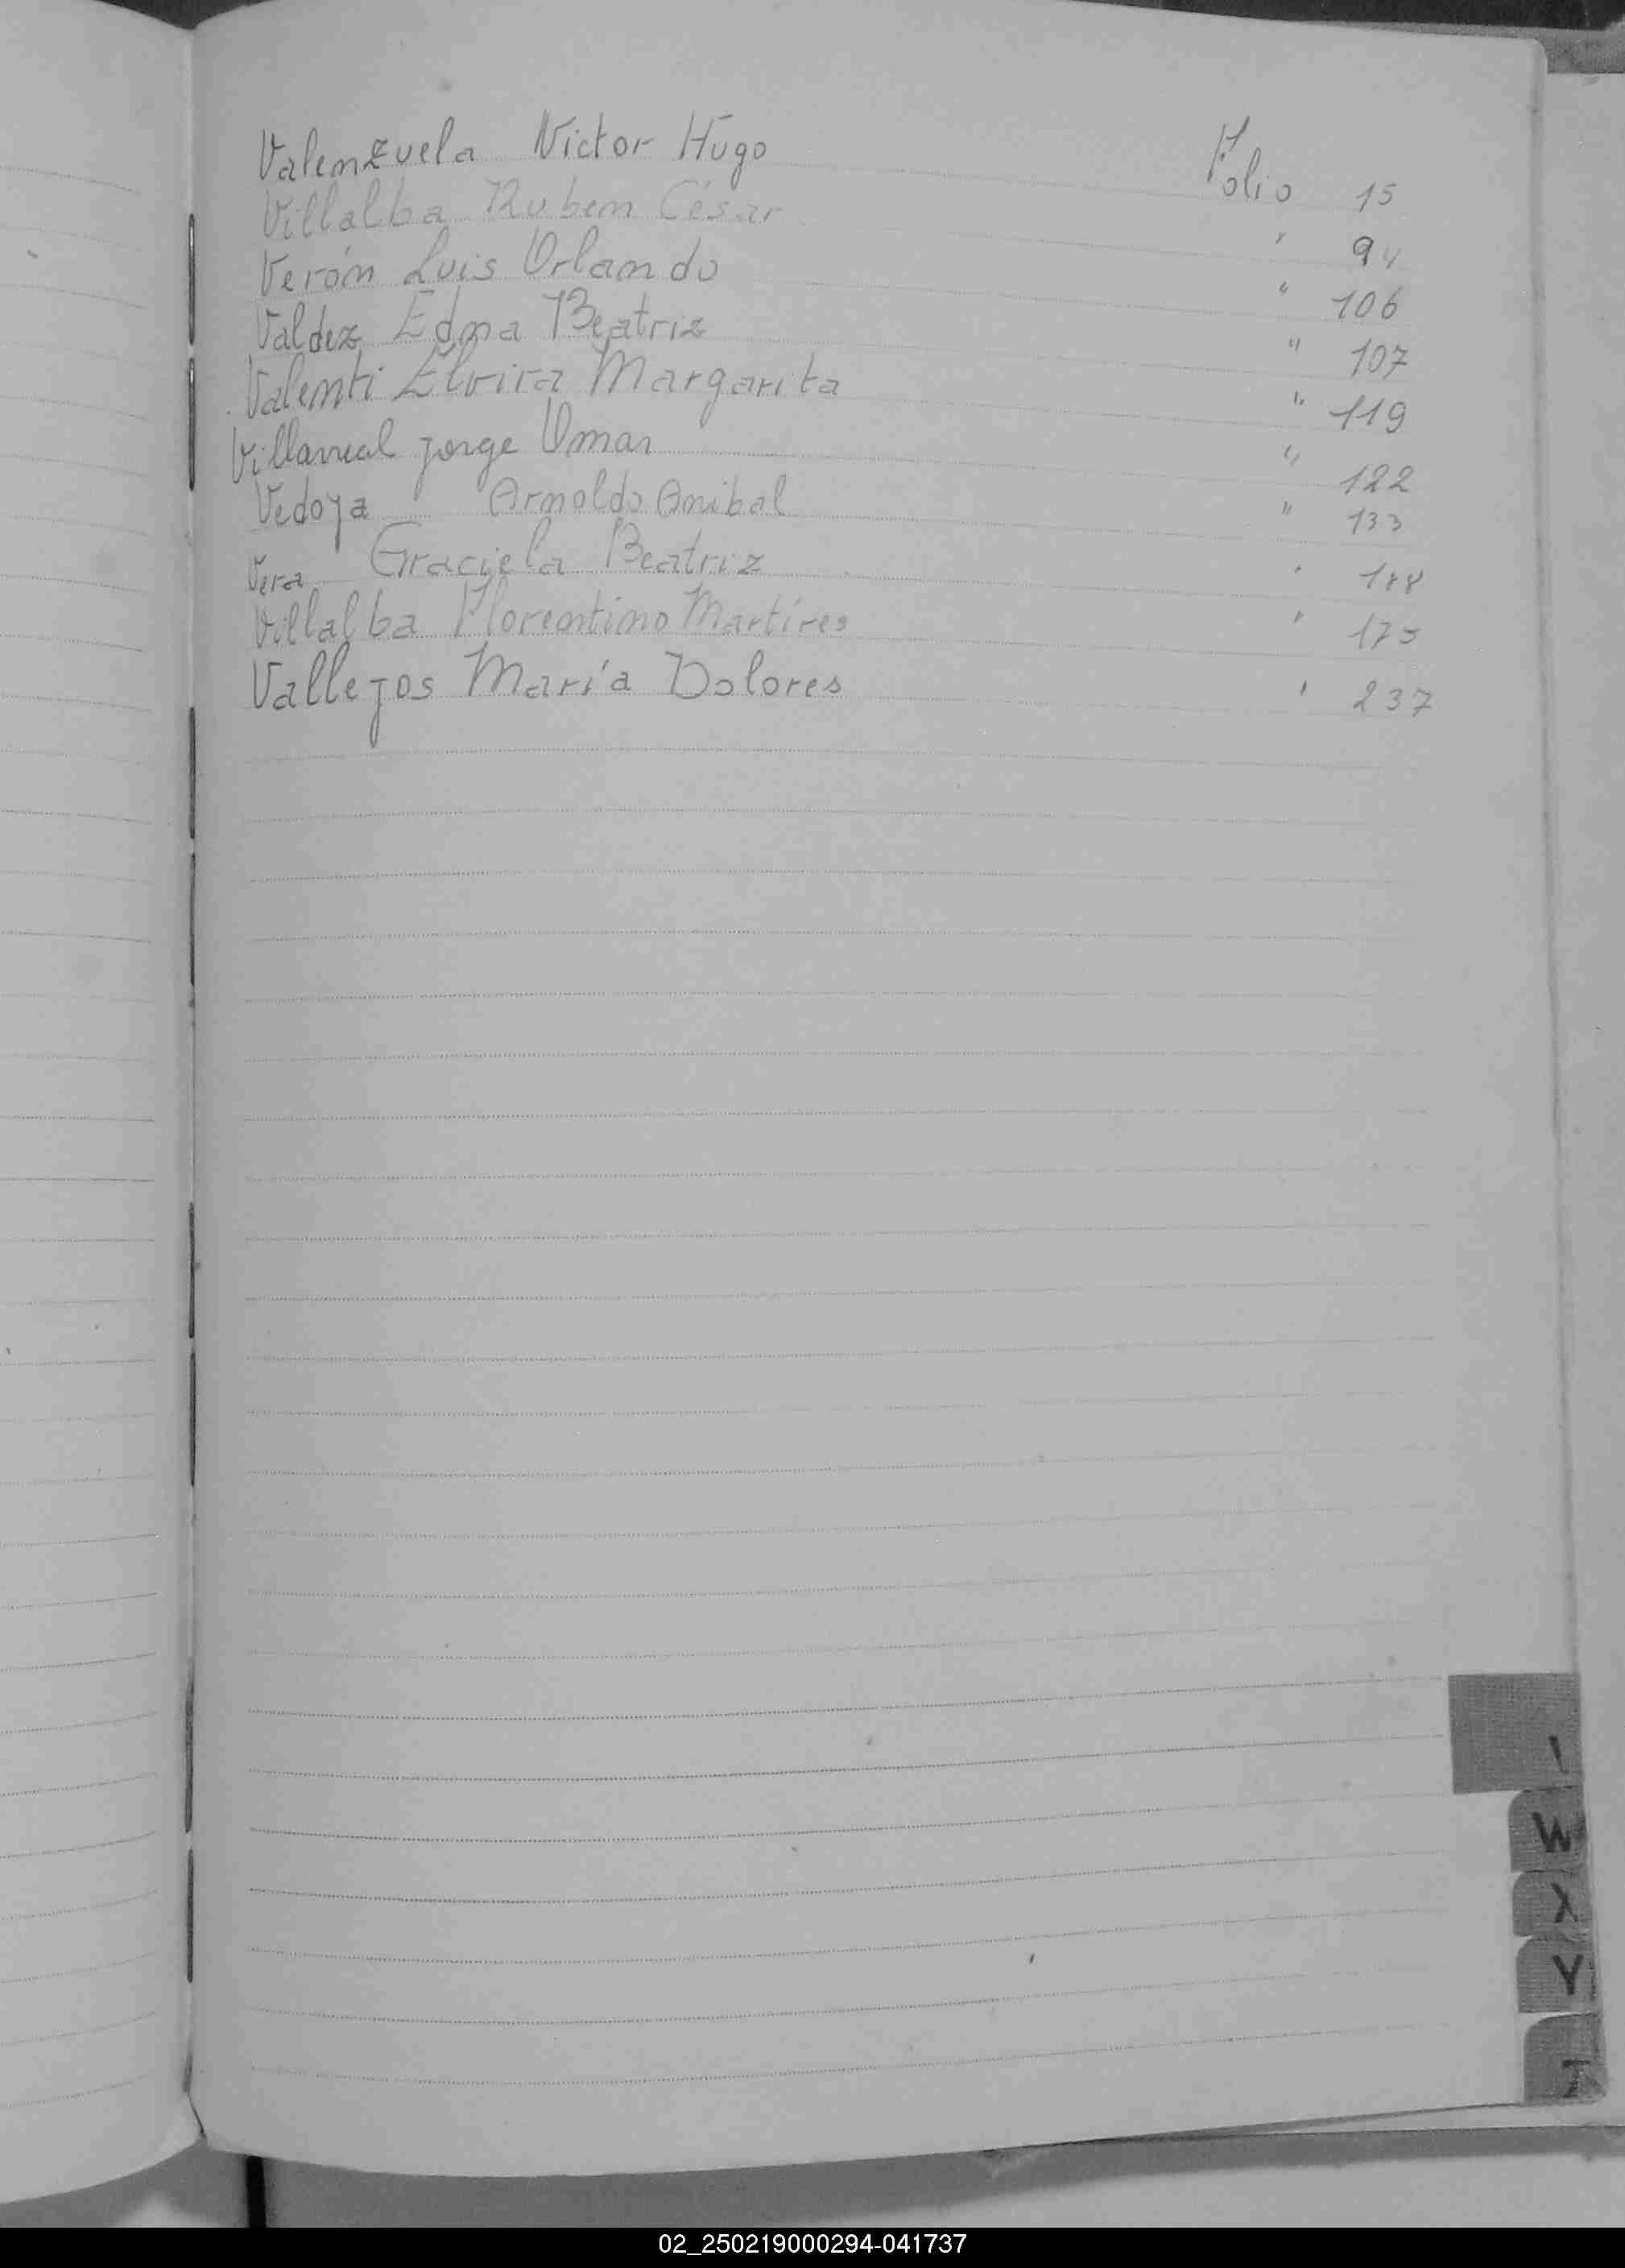 Valenzuela Victor Hugo Folio 15
Villalba Ruben César " 94
Verón Luis Orlando " 106
Valdez Edma Beatriz " 107
Valenti Elvira Margarita " 119
Villarreal Jorge Omar " 122
Vedoya Arnoldo Anibal " 133
Vera Graciela Beatriz "
Villalba Florentino Martíres " 175
Vallejos María Dolores " 237
W
X
Y
Z
02_250219000294-041737